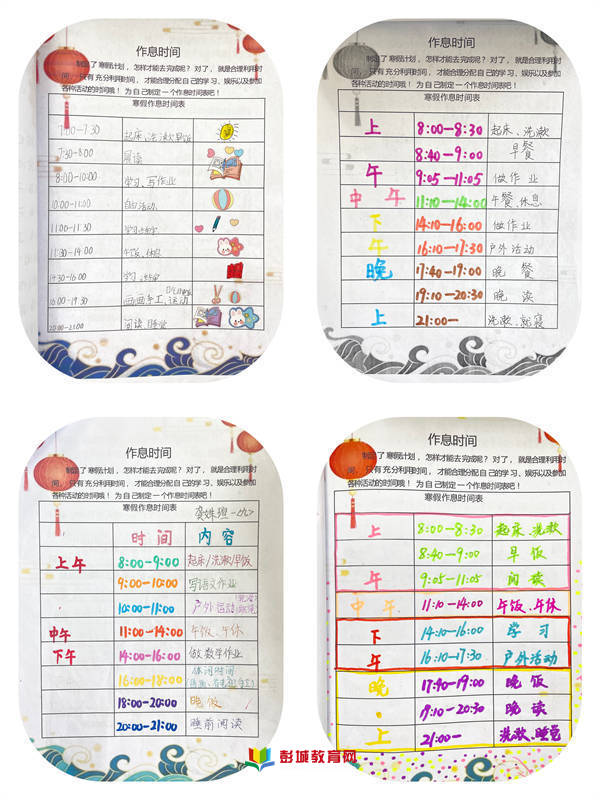 作息时间
制定了寒假计划，怎样才能去完成呢？对了，就是合理利用时
间，只有充分利用时间，才能合理分配自己的学习、娱乐以及参加
各种活动的时间哦！为自己制定一个作息时间表吧！
寒假作息时间表
7:00-7:30 起床、洗漱、早饭
7:30-8:00 晨读
8:00-10:00 学习、写作业
10:00-11:00 自由活动
11:00-11:30
11:30-14:00 午饭、休息
14:30-16:00
16:00-19:30 画画手工、运动
20:00-21:00 阅读、睡觉
作息时间
制定了寒假计划，怎样才能去完成呢？对了，就是合理利用时
间，只有充分利用时间，才能合理分配自己的学习、娱乐以及参加
各种活动的时间哦！为自己制定一个作息时间表吧！
寒假作息时间表
上 8:00-8:30 起床、洗漱
8:40-9:00 早餐
午 9:05-11:05 做作业
中午 11:10-14:00 午餐、休息
下 14:10-16:00 做作业
午 16:10-17:30 户外活动
晚 17:40-19:00 晚餐
19:10-20:30 晚读
上 21:00- 洗漱、就寝
作息时间
制定了寒假计划，怎样才能去完成呢？对了，就是合理利用时
间，只有充分利用时间，才能合理分配自己的学习、娱乐以及参加
各种活动的时间哦！为自己制定一个作息时间表吧！
寒假作息时间表
时间 内容
上午 8:00-9:00 起床/洗漱/早饭
9:00-10:00 写语文作业
10:00-11:00 户外运动
中午 11:00-14:00 午饭、午休
下午 14:00-16:00 做数学作业
16:00-18:00 休闲时间
18:00-20:00 晚饭
20:00-21:00 睡前阅读
作息时间
制定了寒假计划，怎样才能去完成呢？对了，就是合理利用时
间，只有充分利用时间，才能合理分配自己的学习、娱乐以及参加
各种活动的时间哦！为自己制定一个作息时间表吧！
寒假作息时间表
上 8:00-8:30 起床、洗漱
8:40-9:00 早饭
午 9:05-11:05 阅读
中午 11:10-14:00 午饭、午休
下 14:10-16:00 学习
午 16:10-17:30 户外活动
晚 17:40-19:00 晚饭
19:10-20:30 晚读
上 21:00- 洗漱、睡觉
彭城教育网